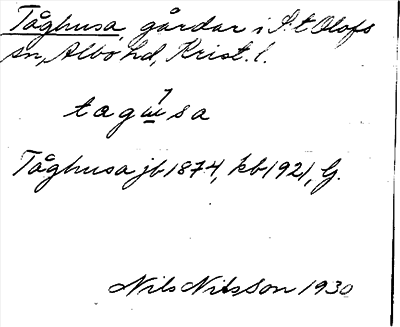 Tåghusa, gårdar i S:t Olofs
sn, Albo hd, Krist. l.
tagusa
Tåghusa jb 1874, kb 1921, G.
Nils Nilsson 1930